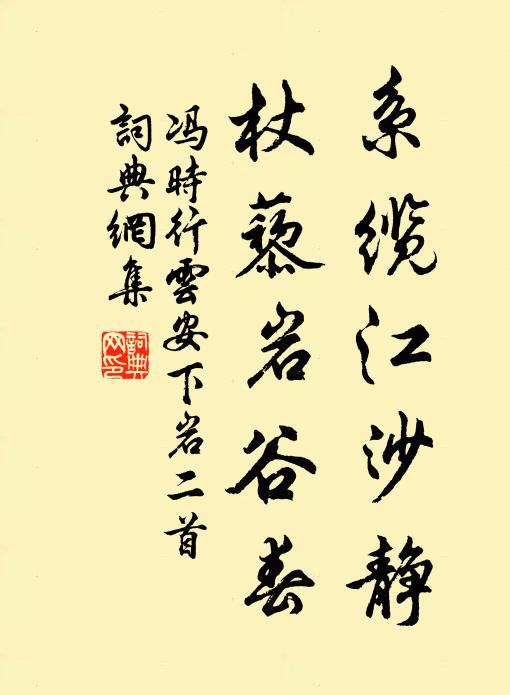 系缆江沙静
杖藜岩谷春
冯時行雲安下岩二首
詞典網集
詞典網印